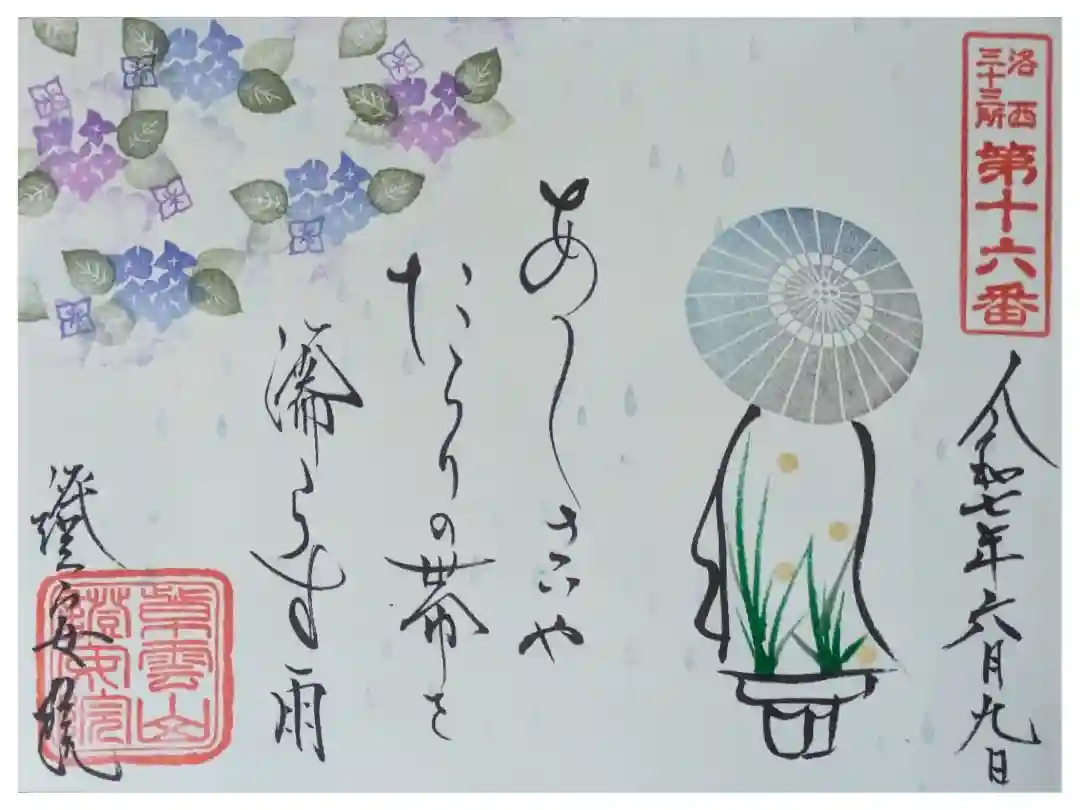 洛西
三十三所
第十六番
令和七年六月九日
あしさいや
たらりの帯を
濡らす雨